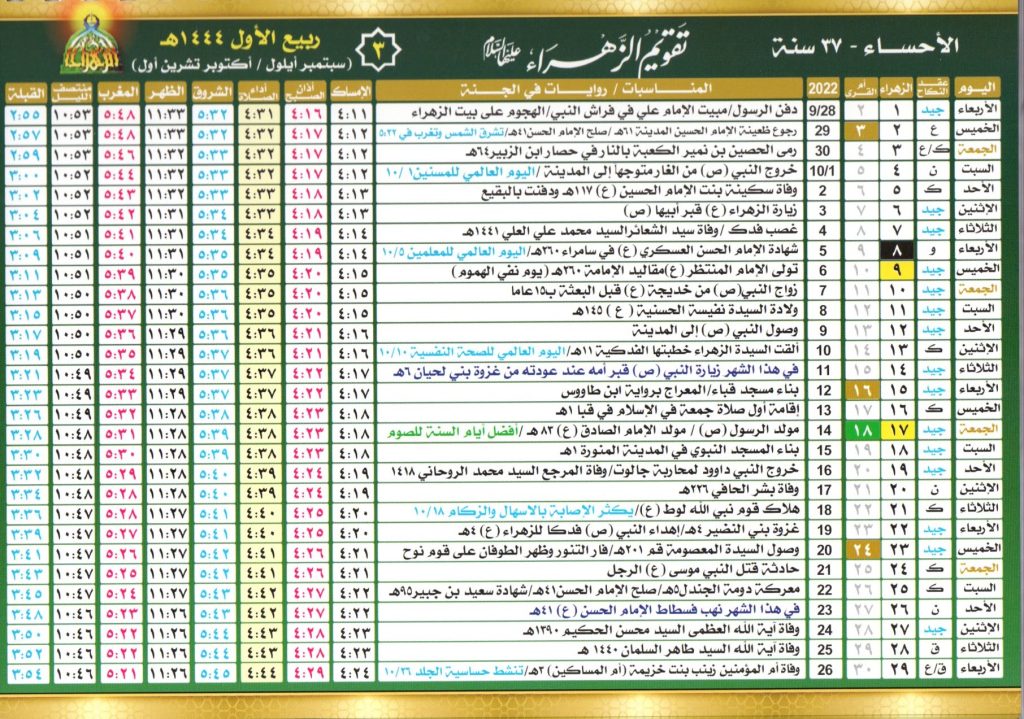 الأحساء - ٣٧ سنة
تقويم الزهراء عليها السلام
٣
ربيع الأول ١٤٤٤هـ
(سبتمبر أيلول / أكتوبر تشرين أول)
الزهراء
اليوم عقد النكاح الزهراء أم القرى 2022 المناسبات / روايات في الجنة الإمساك أذان الصبح أداء الصلاة الشروق الظهر المغرب منتصف الليل القبلة
الأربعاء جيد ١ ٢ 9/28 دفن الرسول/ مبيت الإمام علي في فراش النبي/ الهجوم على بيت الزهراء ٤:١١ ٤:١٦ ٤:٣١ ٥:٣٢ ١١:٣٣ ٥:٤٨ ١٠:٥٣ ٢:٥٥
الخميس ع ٢ ٣ 29 رجوع ظعينة الإمام الحسين المدينة ٦١هـ/ صلح الإمام الحسن٤١هـ/تشرق الشمس وتغرب في ٥:٣٢ ٤:١٢ ٤:١٧ ٤:٣٢ ٥:٣٢ ١١:٣٣ ٥:٤٨ ١٠:٥٣ ٢:٥٧
الجمعة ك/ع ٣ ٤ 30 رمى الحصين بن نمير الكعبة بالنار في حصار ابن الزبير٦٤هـ ٤:١٢ ٤:١٧ ٤:٣٢ ٥:٣٣ ١١:٣٢ ٥:٤٦ ١٠:٥٣ ٢:٥٩
السبت ن ٤ ٥ 10/1 خروج النبي (ص) من الغار متوجها إلى المدينة /اليوم العالمي للمسنين١٠/١ ٤:١٢ ٤:١٧ ٤:٣٢ ٥:٣٣ ١١:٣٢ ٥:٤٤ ١٠:٥٢ ٣:٠٠
الأحد ك ٥ ٦ 2 وفاة سكينة بنت الإمام الحسين (ع) ١١٧هـ ودفنت بالبقيع ٤:١٣ ٤:١٨ ٤:٣٣ ٥:٣٣ ١١:٣٢ ٥:٤٣ ١٠:٥٢ ٣:٠٢
الاثنين جيد ٦ ٧ 3 زيارة الزهراء (ع) قبر أبيها (ص) ٤:١٣ ٤:١٨ ٤:٣٣ ٥:٣٤ ١١:٣١ ٥:٤٢ ١٠:٥٢ ٣:٠٤
الثلاثاء جيد ٧ ٨ 4 غصب فدك /وفاة سيد الشعائر السيد محمد علي العلي ١٤٤١هـ ٤:١٤ ٤:١٩ ٤:٣٤ ٥:٣٤ ١١:٣١ ٥:٤١ ١٠:٥١ ٣:٠٦
الأربعاء و ٨ ٩ 5 شهادة الإمام الحسن العسكري (ع) في سامراء ٢٦٠هـ/اليوم العالمي للمعلمين ١٠/٥ ٤:١٤ ٤:١٩ ٤:٣٤ ٥:٣٥ ١١:٣١ ٥:٤٠ ١٠:٥١ ٣:٠٩
الخميس جيد ٩ ١٠ 6 تولى الإمام المنتظر (ع)مقاليد الإمامة ٢٦٠هـ (يوم نفي الهموم) ٤:١٥ ٤:٢٠ ٤:٣٥ ٥:٣٥ ١١:٣٠ ٥:٣٩ ١٠:٥١ ٣:١١
الجمعة جيد ١٠ ١١ 7 زواج النبي(ص) من خديجة (ع) قبل البعثة ب١٥عاما ٤:١٥ ٤:٢٠ ٤:٣٥ ٥:٣٦ ١١:٣٠ ٥:٣٨ ١٠:٥٠ ٣:١٣
السبت جيد ١١ ١٢ 8 ولادة السيدة نفيسة الحسنية (ع) ١٤٥هـ ٤:١٥ ٤:٢٠ ٤:٣٥ ٥:٣٦ ١١:٣٠ ٥:٣٧ ١٠:٥٠ ٣:١٥
الأحد جيد ١٢ ١٣ 9 وصول النبي (ص) إلى المدينة ٤:١٦ ٤:٢١ ٤:٣٦ ٥:٣٦ ١١:٢٩ ٥:٣٦ ١٠:٥٠ ٣:١٧
الإثنين ك ١٣ ١٤ 10 ألقت السيدة الزهراء خطبتها الفدكية ١١هـ/اليوم العالمي للصحة النفسية ١٠/١٠ ٤:١٦ ٤:٢١ ٤:٣٦ ٥:٣٧ ١١:٢٩ ٥:٣٥ ١٠:٥٠ ٣:١٩
الثلاثاء جيد ١٤ ١٥ 11 في هذا الشهر زيارة النبي (ص) قبر أمه عند عودته من غزوة بني لحيان ٦هـ ٤:١٧ ٤:٢٢ ٤:٣٧ ٥:٣٧ ١١:٢٩ ٥:٣٤ ١٠:٤٩ ٣:٢١
الأربعاء جيد ١٥ ١٦ 12 بناء مسجد قباء/المعراج برواية ابن طاووس ٤:١٧ ٤:٢٢ ٤:٣٧ ٥:٣٧ ١١:٢٩ ٥:٣٣ ١٠:٤٩ ٣:٢٣
الخميس ك ١٦ ١٧ 13 إقامة أول صلاة جمعة في الإسلام في قبا ١هـ ٤:١٨ ٤:٢٣ ٤:٣٨ ٥:٣٨ ١١:٢٨ ٥:٣٢ ١٠:٤٩ ٣:٢٦
الجمعة جيد ١٧ ١٨ 14 مولد الرسول (ص) / مولد الإمام الصادق (ع) ٨٣هـ /أفضل أيام السنة للصوم ٤:١٨ ٤:٢٣ ٤:٣٨ ٥:٣٩ ١١:٢٨ ٥:٣١ ١٠:٤٨ ٣:٢٨
السبت جيد ١٨ ١٩ 15 بناء المسجد النبوي في المدينة المنورة ١هـ ٤:١٨ ٤:٢٣ ٤:٣٨ ٥:٣٩ ١١:٢٨ ٥:٣٠ ١٠:٤٨ ٣:٣٠
الأحد جيد ١٩ ٢٠ 16 خروج النبي داوود لمحاربة جالوت/وفاة المرجع السيد محمد الروحاني ١٤١٨ ٤:١٩ ٤:٢٤ ٤:٣٩ ٥:٤٠ ١١:٢٨ ٥:٢٩ ١٠:٤٨ ٣:٣٢
الإثنين ن ٢٠ ٢١ 17 وفاة بشر الحافي ٢٢٦هـ ٤:١٩ ٤:٢٤ ٤:٣٩ ٥:٤٠ ١١:٢٨ ٥:٢٨ ١٠:٤٨ ٣:٣٤
الثلاثاء ك ٢١ ٢٢ 18 هلاك قوم نبي الله لوط (ع)/يكثر الإصابة بالاسهال والزكام ١٠/١٨ ٤:٢٠ ٤:٢٥ ٤:٤٠ ٥:٤١ ١١:٢٧ ٥:٢٨ ١٠:٤٧ ٣:٣٦
الأربعاء جيد ٢٢ ٢٣ 19 غزوة بني النضير ٤هـ/إهداء النبي (ص) فدكا للزهراء (ع) ٤هـ ٤:٢٠ ٤:٢٥ ٤:٤٠ ٥:٤١ ١١:٢٧ ٥:٢٧ ١٠:٤٧ ٣:٣٩
الخميس جيد ٢٣ ٢٤ 20 وصول السيدة المعصومة قم ٢٠١هـ/فار التنور وظهر الطوفان على قوم نوح ٤:٢١ ٤:٢٦ ٤:٤١ ٥:٤٢ ١١:٢٧ ٥:٢٦ ١٠:٤٧ ٣:٤١
الجمعة ك ٢٤ ٢٥ 21 حادثة قتل النبي موسى (ع) الرجل ٤:٢١ ٤:٢٦ ٤:٤١ ٥:٤٢ ١١:٢٧ ٥:٢٥ ١٠:٤٧ ٣:٤٣
السبت ك ٢٥ ٢٦ 22 معركة دومة الجندل٥هـ/صلح الإمام الحسن٤١هـ/شهادة سعيد بن جبير٩٥هـ ٤:٢٢ ٤:٢٧ ٤:٤٢ ٥:٤٢ ١١:٢٧ ٥:٢٤ ١٠:٤٧ ٣:٤٥
الأحد ن ٢٦ ٢٧ 23 في هذا الشهر نهب فسطاط الإمام الحسن (ع) ٤١هـ ٤:٢٢ ٤:٢٧ ٤:٤٢ ٥:٤٣ ١١:٢٦ ٥:٢٣ ١٠:٤٦ ٣:٤٨
الإثنين جيد ٢٧ ٢٨ 24 وفاة آية الله العظمى السيد محسن الحكيم ١٣٩٠هـ ٤:٢٣ ٤:٢٨ ٤:٤٣ ٥:٤٤ ١١:٢٦ ٥:٢٢ ١٠:٤٦ ٣:٥٠
الثلاثاء ق ٢٨ ٢٩ 25 وفاة آية الله السيد طاهر السلمان ١٤٤٠هـ ٤:٢٣ ٤:٢٨ ٤:٤٣ ٥:٤٤ ١١:٢٦ ٥:٢٢ ١٠:٤٦ ٣:٥٢
الأربعاء ق/ع ٢٩ ٣٠ 26 وفاة أم المؤمنين زينب بنت خزيمة (أم المساكين) ٣هـ/تنشط حساسية الجلد ١٠/٢٦ ٤:٢٤ ٤:٢٩ ٤:٤٤ ٥:٤٥ ١١:٢٦ ٥:٢١ ١٠:٤٦ ٣:٥٤